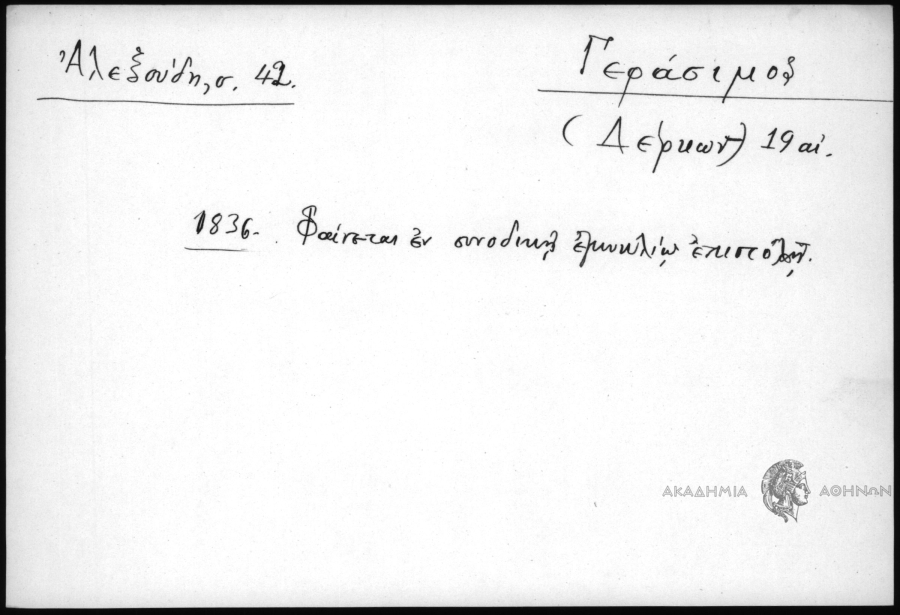 Ἀλεξούδης, σ. 42.
Γεράσιμος
(Δέρκων) 19 αἰ.
1836. Φαίνεται ἐν συνοδικῇ ἐγκυκλίῳ ἐπιστολῇ.
ΑΚΑΔΗΜΙΑ ΑΘΗΝΩΝ